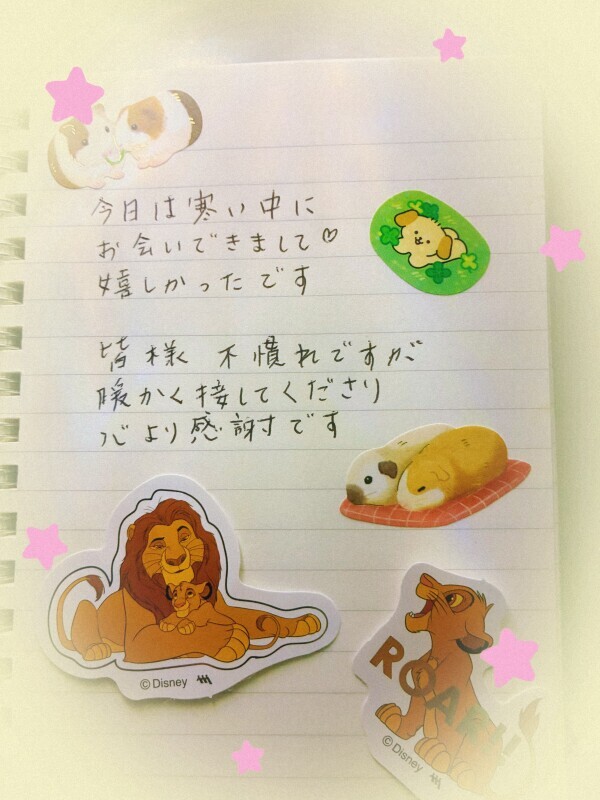 今日は寒い中に
お会いできまして♡
嬉しかったです
皆様 不慣れですが
暖かく接してくださり
心より感謝です
©Disney
ROAR!!
©Disney